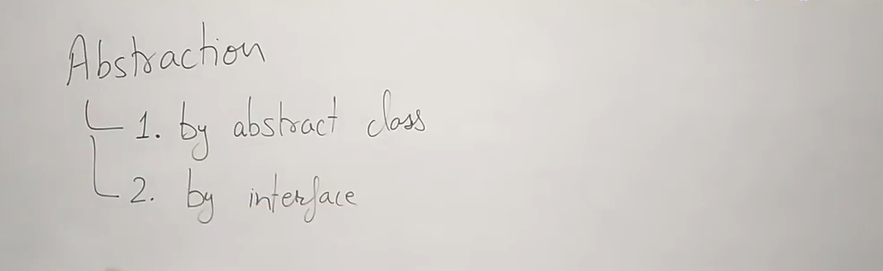 Abstraction
1. by abstract class
2. by interface